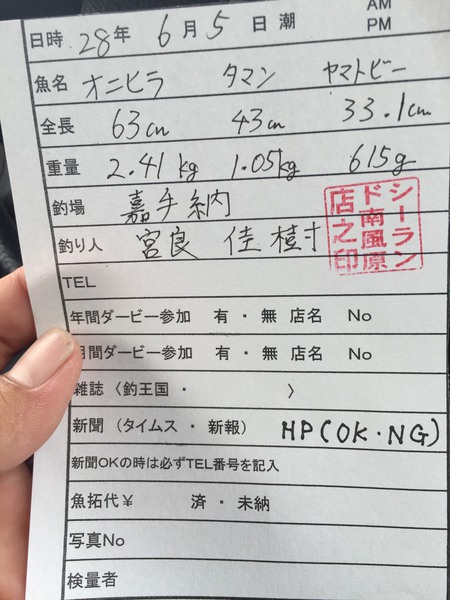 AM
日時 28年 6月 5日 潮 PM
魚名 オニヒラ タマン ヤマトビー
全長 63cm 43cm 33.1cm
重量 2.41kg 1.05kg 615g
釣場 嘉手納
釣り人 宮良 佳樹
シーラン
ド南風原
店之印
TEL
年間ダービー参加 有・無 店名 No
月間ダービー参加 有・無 店名 No
雑誌〈釣王国・ 〉
新聞(タイムス・新報) HP(OK・NG)
新聞OKの時は必ずTEL番号を記入
魚拓代¥ 済・未納
写真No
検量者